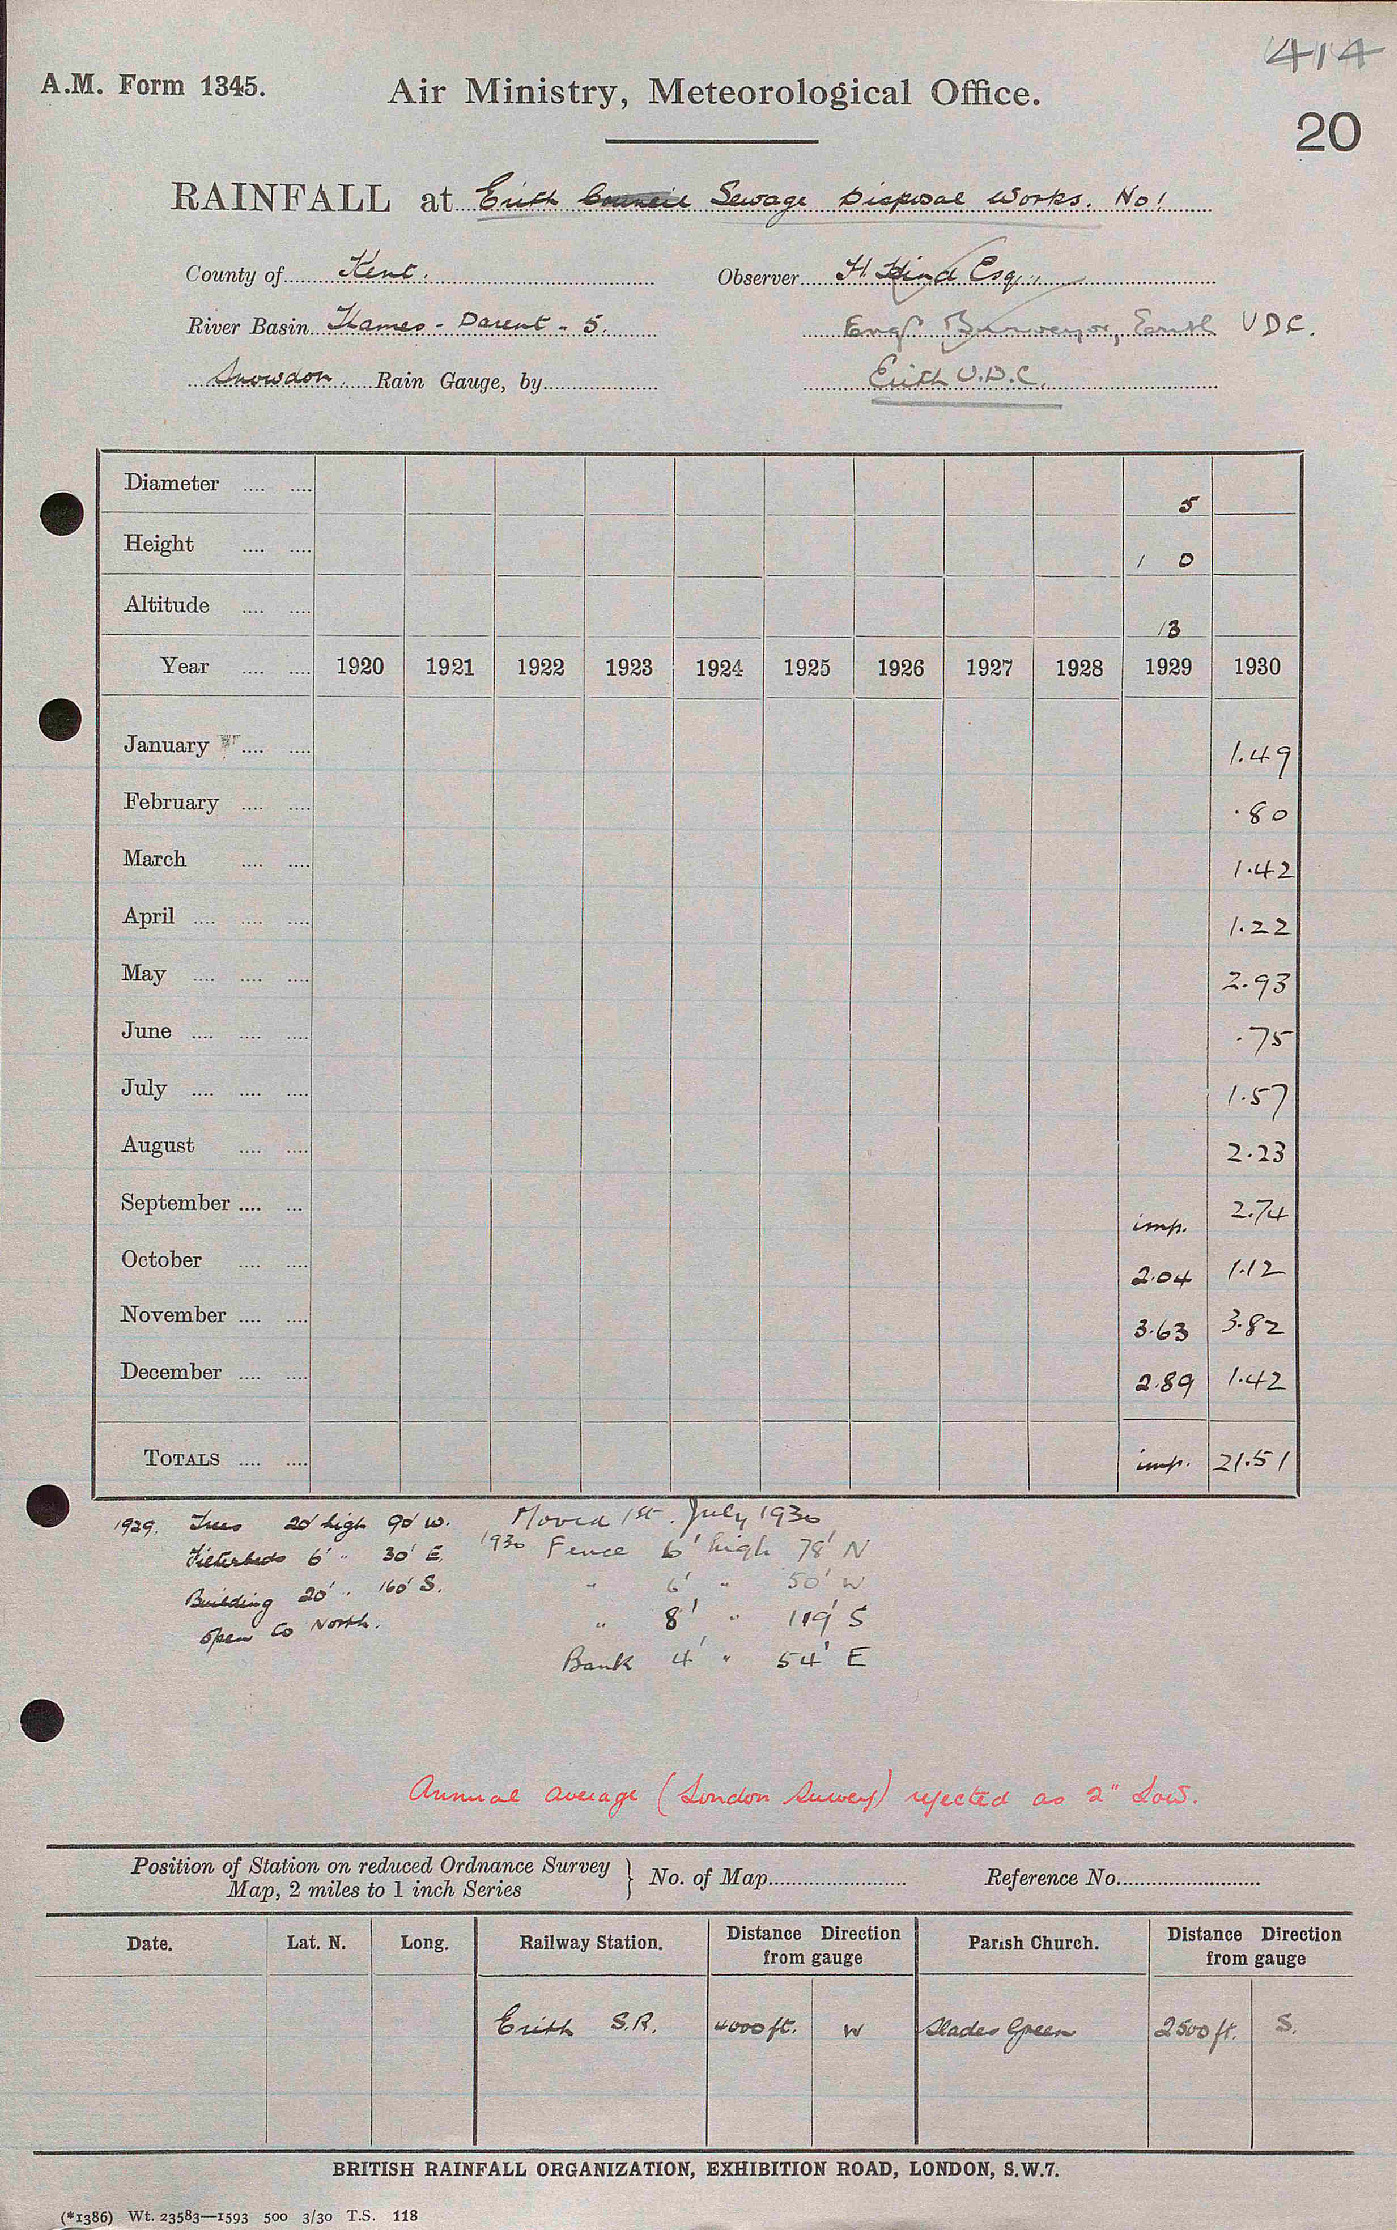 414
A.M. Form 1345. Air Ministry, Meteorological Office.
20
RAINFALL at Erith Council Sewage Disposal Works. No 1
County of Kent. Observer H. Hind Esq.,
River Basin Thames - Darent - 5. Engr & Surveyor, Erith UDC.
Snowdon Rain Gauge, by Erith U.D.C.
Diameter .... .... 5
Height .... .... 1 0
Altitude .... .... 13
Year .... .... 1920 1921 1922 1923 1924 1925 1926 1927 1928 1929 1930
January .... .... 1.49
February .... .... .80
March .... .... 1.42
April .... .... .... 1.22
May .... .... .... 2.93
June .... .... .... .75
July .... .... .... 1.57
August .... .... 2.23
September .... ... imp. 2.74
October .... .... 2.04 1.12
November .... .... 3.63 3.82
December .... .... 2.89 1.42
TOTALS .... .... imp. 21.51
1929. Trees 20' high 90' W. Moved 1st July 1930
Filterbeds 6' " 30' E. 1930 Fence 6' high 78' N
Building 20' " 160' S. " 6' " 50' W
open to North. " 8' " 119' S
Bank 4' " 54' E
Annual average (London Survey) rejected as 2" low.
Position of Station on reduced Ordnance Survey
Map, 2 miles to 1 inch Series } No. of Map Reference No.
Date. Lat. N. Long. Railway Station. Distance Direction from gauge Parish Church. Distance Direction from gauge
Erith S.R. 4000 ft. W Slades Green 2500 ft. S.
BRITISH RAINFALL ORGANIZATION, EXHIBITION ROAD, LONDON, S.W.7.
(*1386) Wt. 23583—1593 500 3/30 T.S. 118